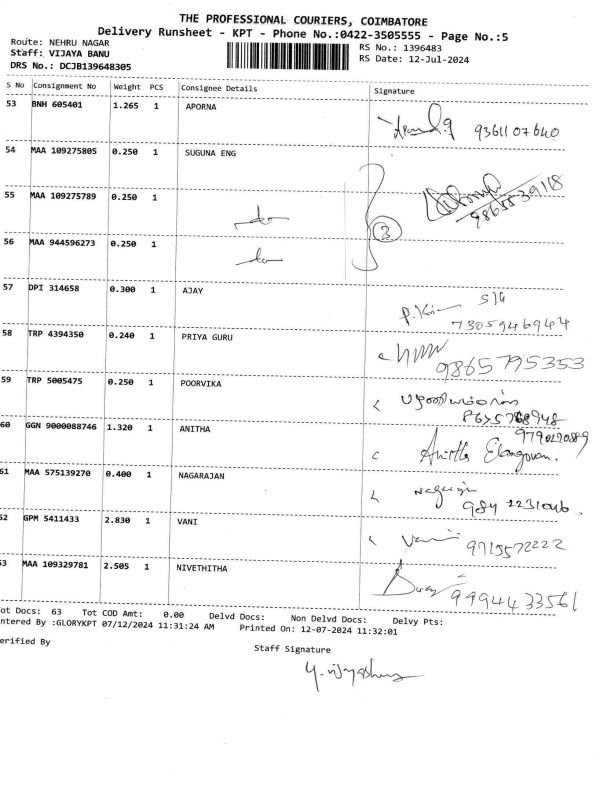 THE PROFESSIONAL COURIERS, COIMBATORE
Delivery Runsheet - KPT - Phone No.:0422-3505555 - Page No.:5
Route: NEHRU NAGAR RS No.: 1396483
Staff: VIJAYA BANU RS Date: 12-Jul-2024
DRS No.: DCJB139648305
S No Consignment No Weight PCS Consignee Details Signature
53 BNH 605401 1.265 1 APORNA 9361107640
54 MAA 109275805 0.250 1 SUGUNA ENG
55 MAA 109275789 0.250 1 do 9865539118
56 MAA 944596273 0.250 1 do 3
57 DPI 314658 0.300 1 AJAY
7305946944
58 TRP 4394350 0.240 1 PRIYA GURU
9865795353
59 TRP 5005475 0.250 1 POORVIKA
60 GGN 9000088746 1.320 1 ANITHA
Anitha Elangovan.
61 MAA 575139270 0.400 1 NAGARAJAN
62 GPM 5411433 2.830 1 VANI Vani 9715572222
63 MAA 109329781 2.505 1 NIVETHITHA 9994433561
Tot Docs: 63 Tot COD Amt: 0.00 Delvd Docs: Non Delvd Docs: Delvy Pts:
Entered By :GLORYKPT 07/12/2024 11:31:24 AM Printed On: 12-07-2024 11:32:01
Verified By Staff Signature